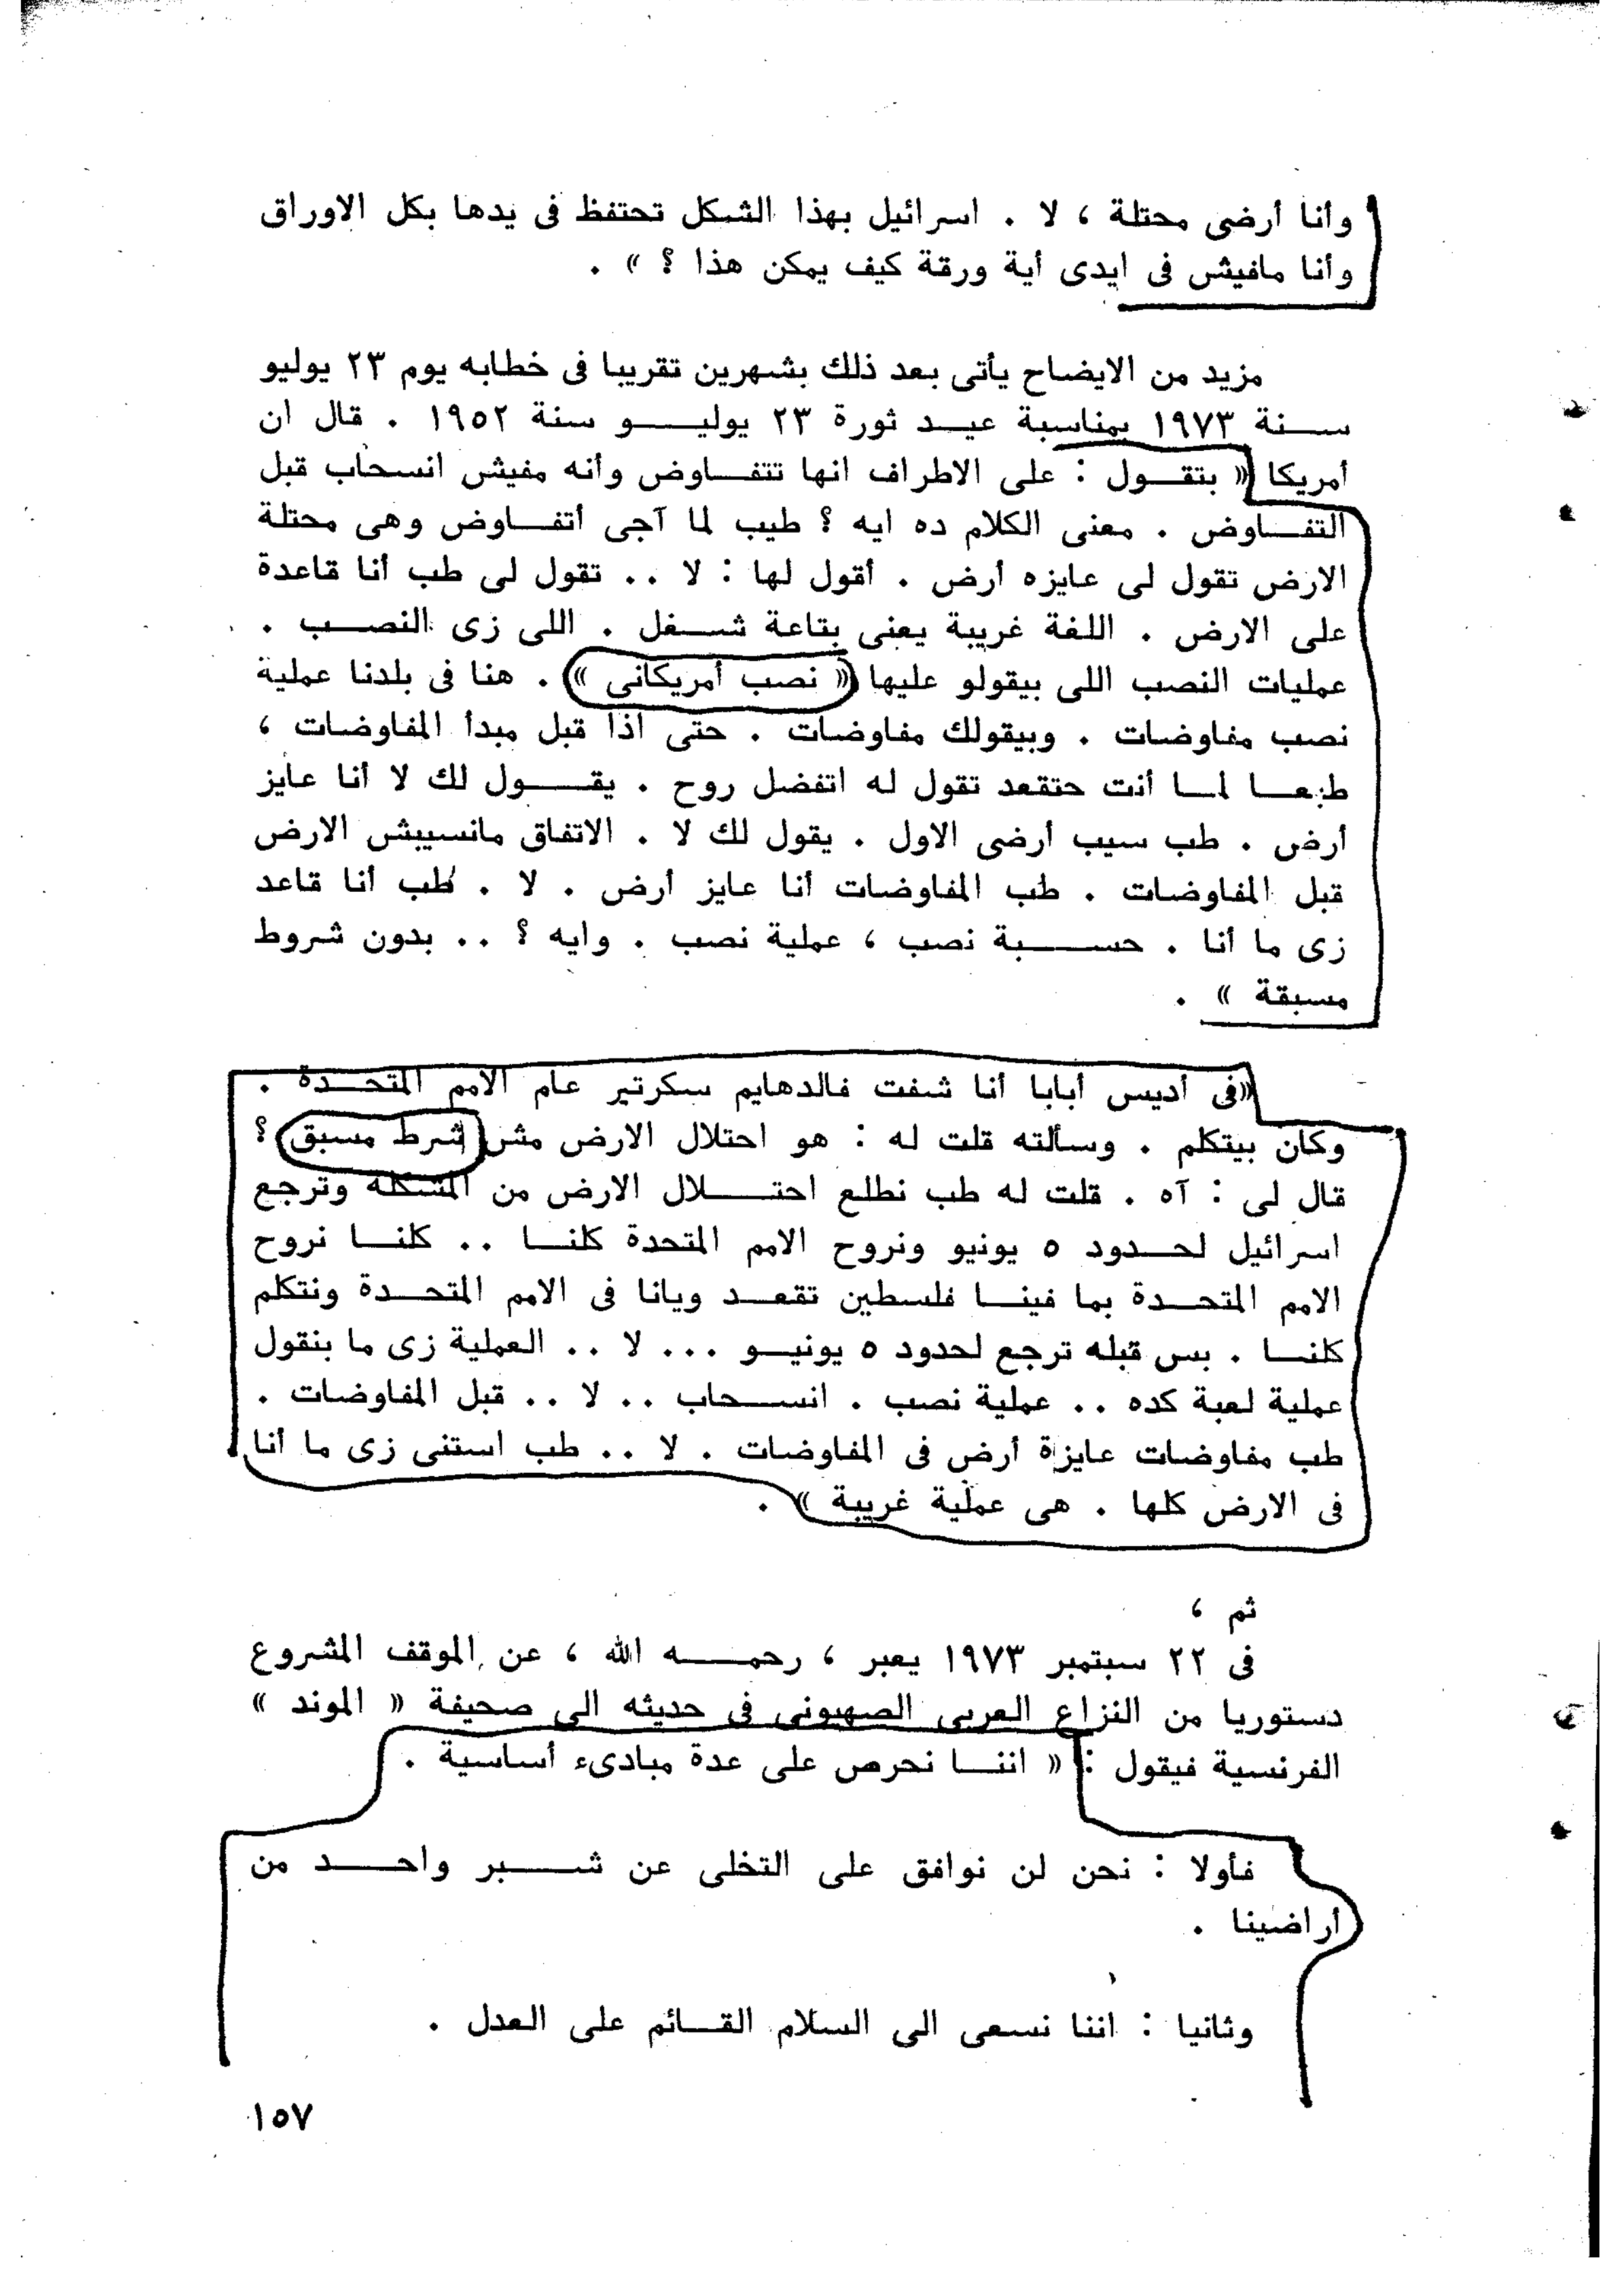 وأنا أرضى محتلة ، لا . اسرائيل بهذا الشكل تحتفظ فى يدها بكل الاوراق
وأنا مافيش فى ايدى أية ورقة كيف يمكن هذا ؟ » .
مزيد من الايضاح يأتى بعد ذلك بشهرين تقريبا فى خطابه يوم ٢٣ يوليو
سنة ١٩٧٣ بمناسبة عيد ثورة ٢٣ يوليو سنة ١٩٥٢ . قال ان
أمريكا « بتقول : على الاطراف انها تتفاوض وأنه مفيش انسحاب قبل
التفاوض . معنى الكلام ده ايه ؟ طيب لما آجى أتفاوض وهى محتلة
الارض تقول لى عايزه أرض . أقول لها : لا .. تقول لى طب أنا قاعدة
على الارض . اللغة غريبة يعنى بتاعة شغل . اللى زى النصب .
عمليات النصب اللى بيقولو عليها « نصب أمريكانى » . هنا فى بلدنا عملية
نصب مفاوضات . وبيقولك مفاوضات . حتى اذا قبل مبدأ المفاوضات ،
طبعا لما أنت حتقعد تقول له اتفضل روح . يقول لك لا أنا عايز
أرض . طب سيب أرضى الاول . يقول لك لا . الاتفاق مانسيبش الارض
قبل المفاوضات . طب المفاوضات أنا عايز أرض . لا . طب أنا قاعد
زى ما أنا . حسبة نصب ، عملية نصب . وايه ؟ .. بدون شروط
مسبقة » .
«فى أديس أبابا أنا شفت فالدهايم سكرتير عام الامم المتحدة .
وكان بيتكلم . وسألته قلت له : هو احتلال الارض مش شرط مسبق ؟
قال لى : آه . قلت له طب نطلع احتلال الارض من المشكلة وترجع
اسرائيل لحدود ٥ يونيو ونروح الامم المتحدة كلنا .. كلنا نروح
الامم المتحدة بما فينا فلسطين تقعد ويانا فى الامم المتحدة ونتكلم
كلنا . بس قبله ترجع لحدود ٥ يونيو ... لا .. العملية زى ما بنقول
عملية لعبة كده .. عملية نصب . انسحاب .. لا .. قبل المفاوضات .
طب مفاوضات عايزة أرض فى المفاوضات . لا .. طب استنى زى ما أنا
فى الارض كلها . هى عملية غريبة » .
ثم ،
فى ٢٢ سبتمبر ١٩٧٣ يعبر ، رحمه الله ، عن الموقف المشروع
دستوريا من النزاع العربى الصهيونى فى حديثه الى صحيفة « الموند »
الفرنسية فيقول : « اننا نحرص على عدة مبادىء أساسية .
فأولا : نحن لن نوافق على التخلى عن شبر واحد من
أراضينا .
وثانيا : اننا نسعى الى السلام القائم على العدل .
١٥٧